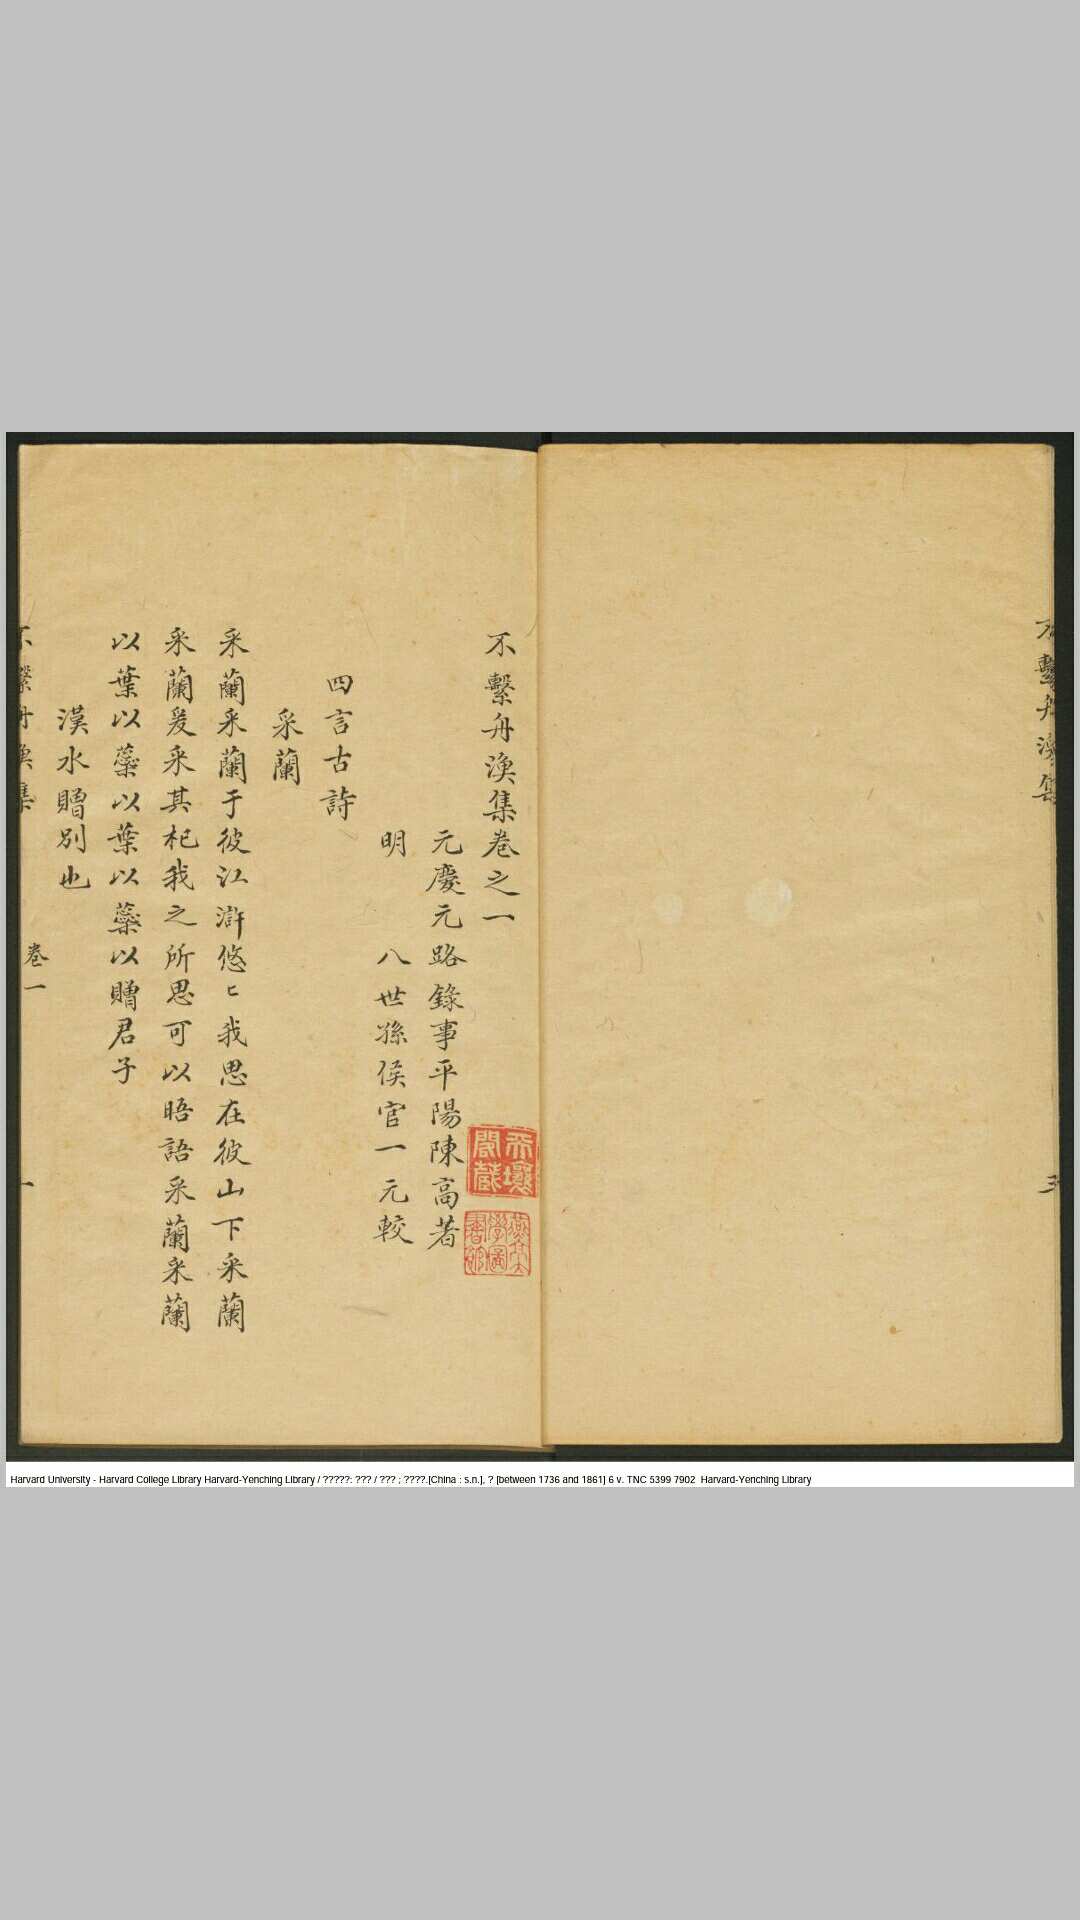 不繫舟漁集
三
不繫舟漁集卷之一
元慶元路錄事平陽陳高著
明　八世孫侯官一元較
四言古詩
采蘭
采蘭采蘭于彼江滸悠〻我思在彼山下采蘭
采蘭爰采其杞我之所思可以晤語采蘭采蘭
以葉以蘂以葉以蘂以贈君子
漢水贈別也
不繫舟漁集　卷一　一
Harvard University - Harvard College Library Harvard-Yenching Library / ?????: ??? / ??? ; ????.[China : s.n.], ? [between 1736 and 1861] 6 v. TNC 5399 7902  Harvard-Yenching Library